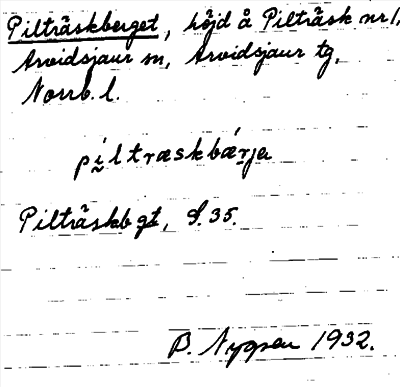 Pilträskberget, höjd å Pilträsk nr 1,
Arvidsjaur sn, Arvidsjaur tg,
Norrb. l.
píltræskbǽrja
Pilträskbgt, S. 35.
B. Nygren 1932.